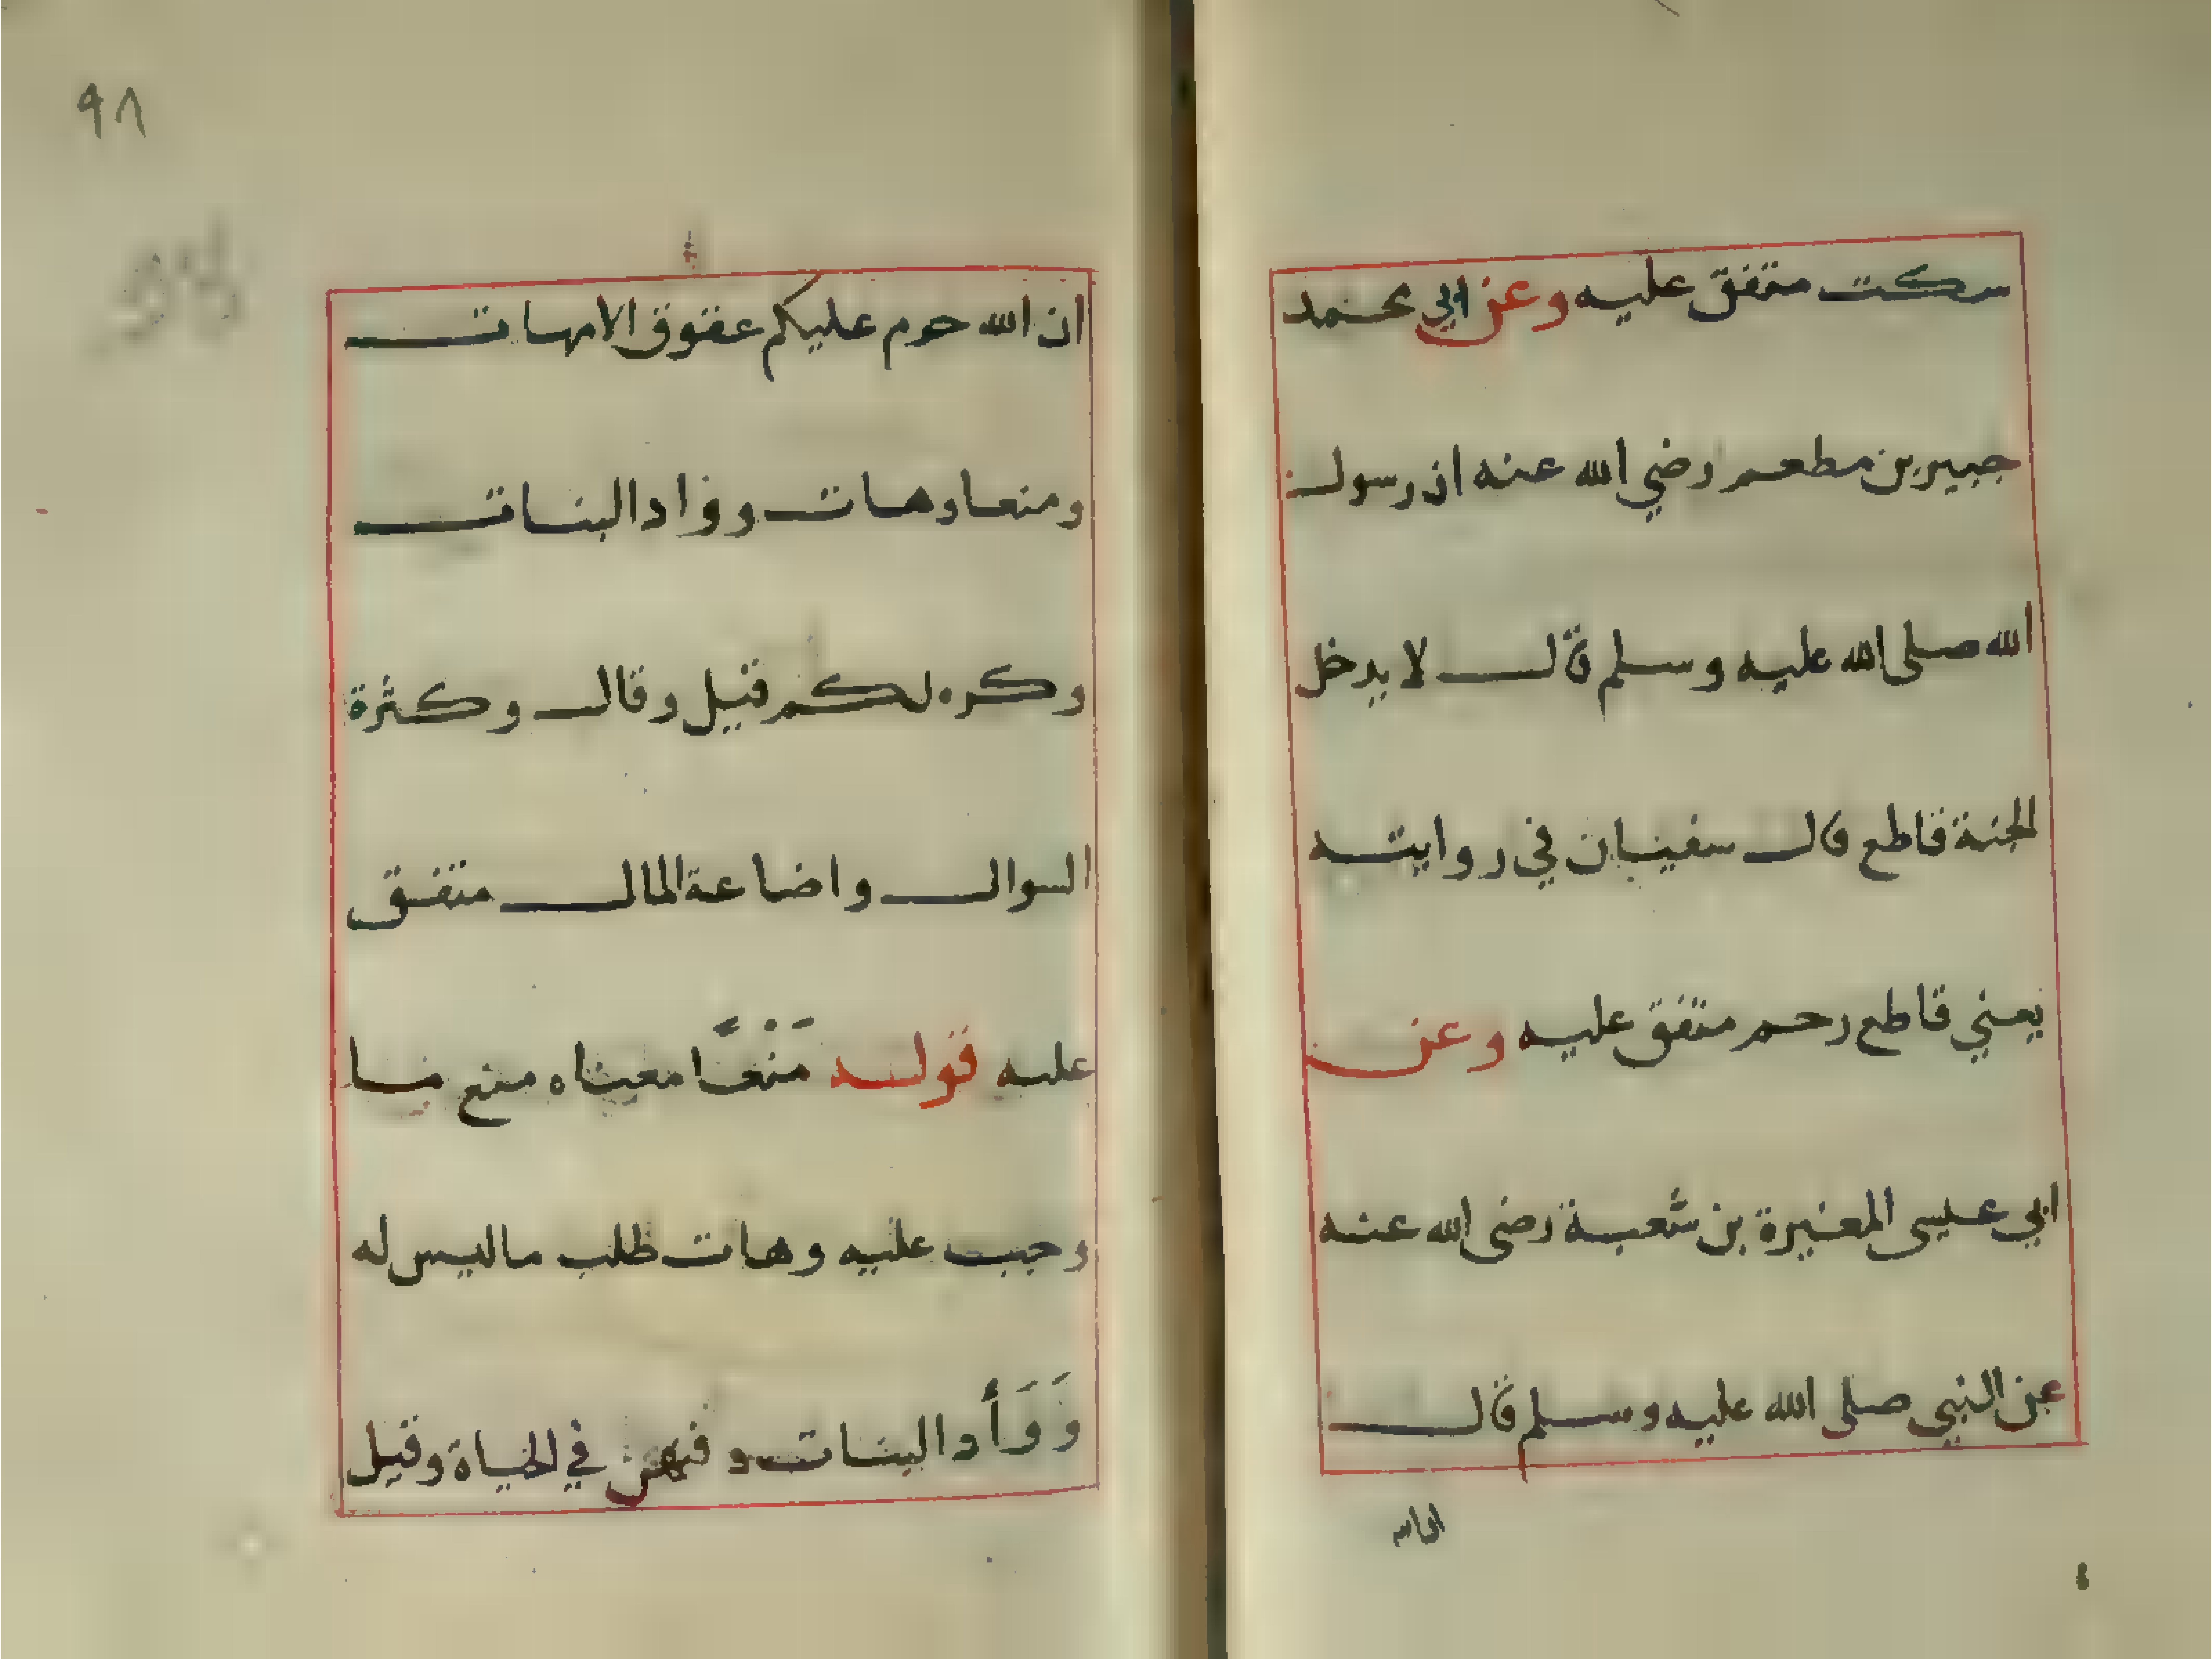 سكت متفق عليه وعن ابي محمد
جبير بن مطعم رضي الله عنه ان رسول
الله صلى الله عليه وسلم قال لا يدخل
الجنة قاطع قال سفيان في روايته
يعني قاطع رحم متفق عليه وعن
ابي عيسى المغيرة بن شعبة رضى الله عنه
عن النبي صلى الله عليه وسلم قال
ان الله
٩٨
ان الله حرم عليكم عقوق الامهات
ومنعا وهات وواد البنات
وكره لكم قيل وقال وكثرة
السوال واضاعة المال متفق
عليه قوله مَنْعًا معناه منع ما
وجب عليه وهات طلب ما ليس له
وَوَأد البنات دفنهن في الحياة وقيل